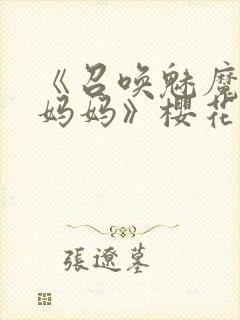 《召唤魅魔
妈妈》樱花
張遼墓